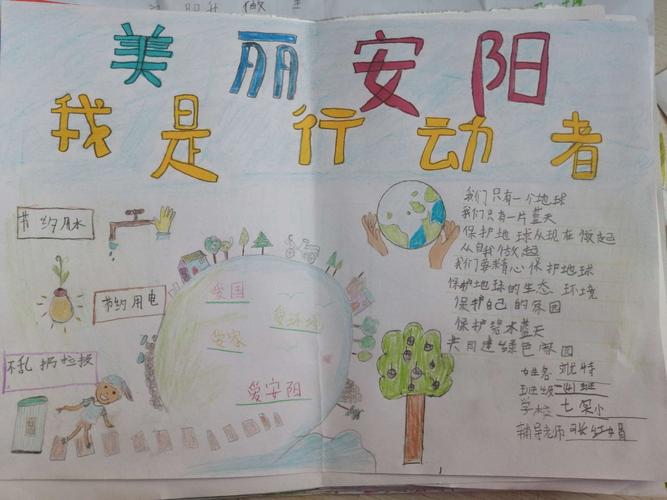 美丽安阳
我是行动者
节约用水
节约用电
爱国
爱环境
爱家
爱安阳
我们只有一个地球
我们只有一片蓝天
保护地球从现在做起
从自我做起
我们要精心保护地球
保护地球的生态环境
保护自己的家园
保护碧水蓝天
建绿色家园
姓名
班级
学校
辅导老师